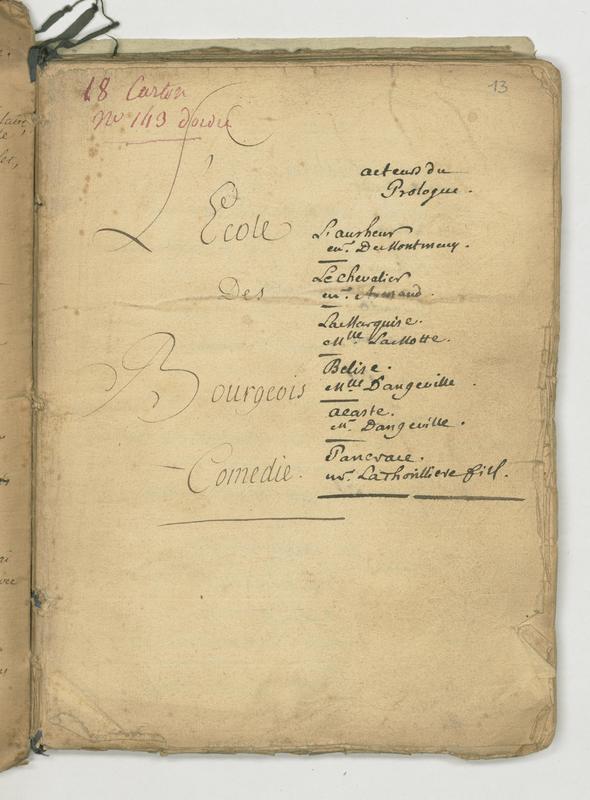 18 Carton
No 143 dordre
13
L'Ecole
Des
Bourgeois
Comedie.
acteurs du
Prologue.
L'autheur
mr. De Montmeny.
Le Chevalier
mr. Armand.
La Marquise.
Mlle La Motte.
Belise.
Mlle Dangeville
acaste.
Mr. Dangeville.
Pancrace.
mr. La Thorilliere fils.